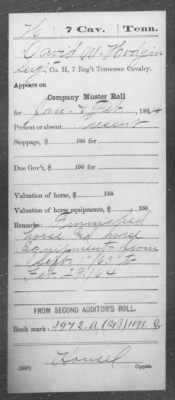 H | 7 Cav. | Tenn.
David W. Hodgin
Sergt, Co. H, 7 Reg't Tennessee Cavalry.
Appears on
Company Muster Roll
for Jan & Feb, 1864
Present or absent Present
Stoppage, $ 100 for
Due Gov't, $ 100 for
Valuation of horse, $ 100
Valuation of horse equipments, $ 100
Remarks: Furnished
horse and horse
equipments from
Sept 1" /63 to
Feb 29/64
FROM SECOND AUDITOR'S ROLL.
Book mark:
Housel
(858) Copyist.